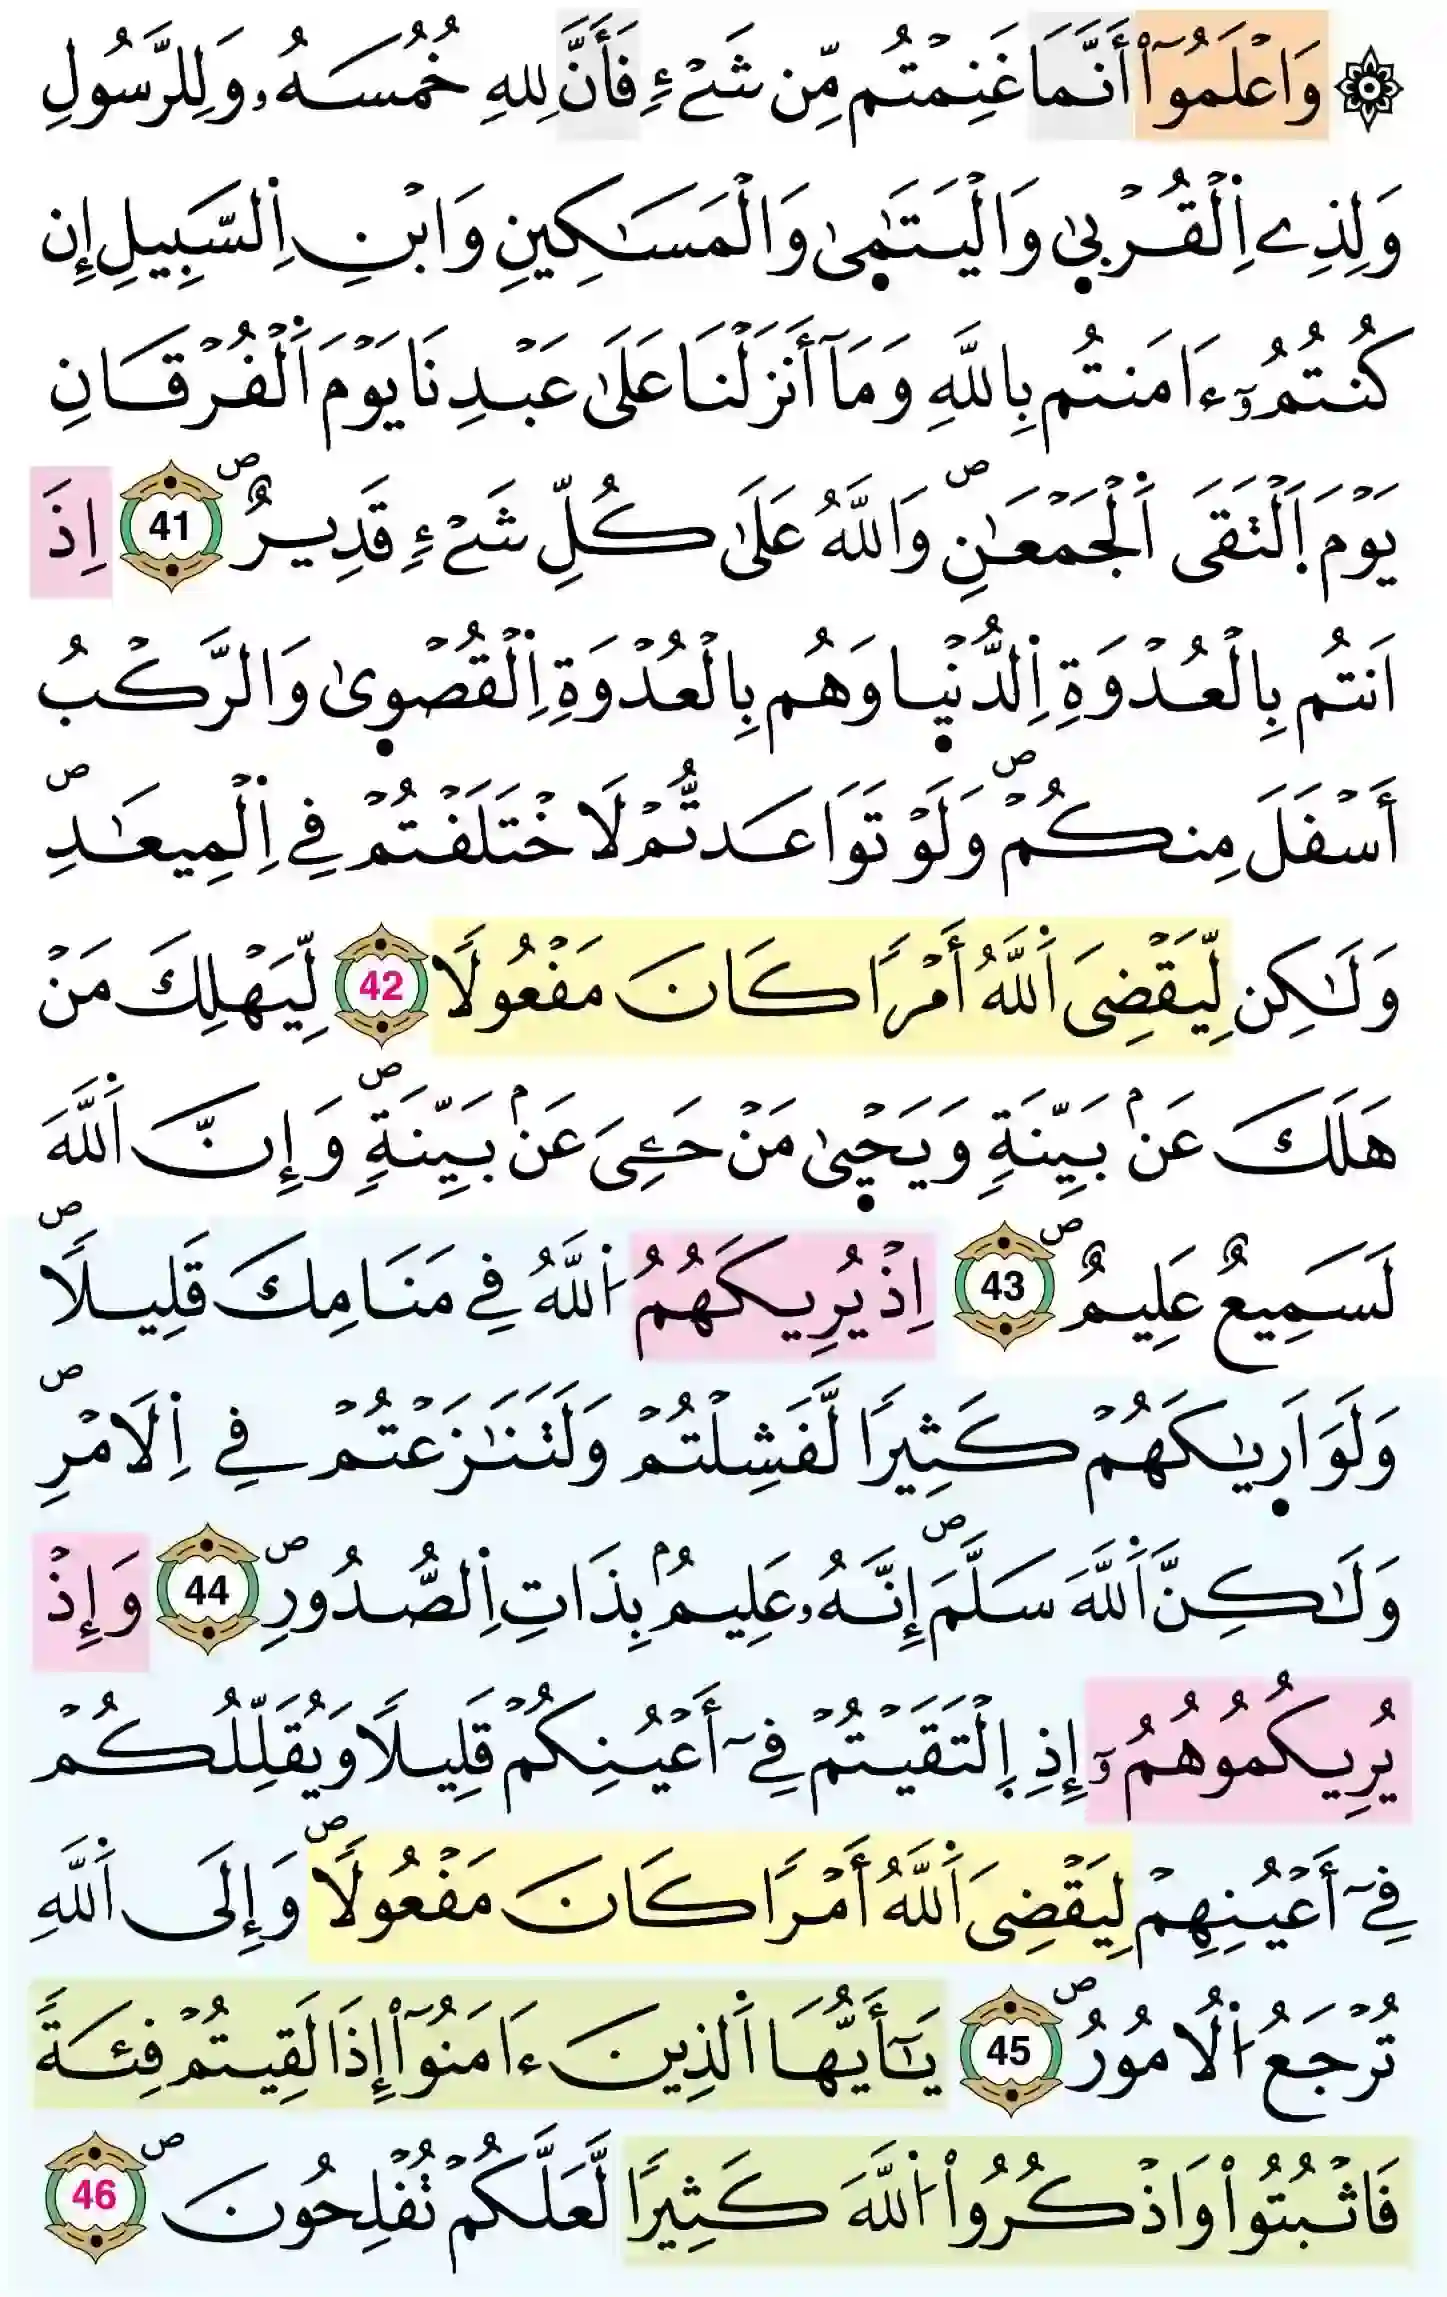 ۞ وَاعْلَمُوٓاْ أَنَّمَا غَنِمْتُم مِّن شَےْءٖ فَأَنَّ لِلهِ خُمُسَهُۥ وَلِلرَّسُولِ
وَلِذِے اِ۬لْقُرْب۪يٰ وَالْيَتَٰم۪يٰ وَالْمَسَٰكِينِ وَابْنِ اِ۬لسَّبِيلِ إِن
كُنتُمُۥٓ ءَامَنتُم بِاللَّهِ وَمَآ أَنزَلْنَا عَلَىٰ عَبْدِنَا يَوْمَ اَ۬لْفُرْقَانِ
يَوْمَ اَ۪لْتَقَى اَ۬لْجَمْعَٰنِۖ وَاللَّهُ عَلَىٰ كُلِّ شَےْءٖ قَدِيرٌۖ 41 اِذَ
اَنتُم بِالْعُدْوَةِ اِ۬لدُّنْي۪ا وَهُم بِالْعُدْوَةِ اِ۬لْقُصْو۪يٰ وَالرَّكْبُ
أَسْفَلَ مِنكُمْۖ وَلَوْ تَوَاعَدتُّمْ لَاخْتَلَفْتُمْ فِے اِ۬لْمِيعَٰدِۖ
وَلَٰكِن لِّيَقْضِىَ اَ۬للَّهُ أَمْرًا كَانَ مَفْعُولًا 42 لِّيَهْلِكَ مَنْ
هَلَكَ عَنۢ بَيِّنَةٖ وَيَحْي۪يٰ مَنْ حَيِىَ عَنۢ بَيِّنَةٍۖ وَإِنَّ اَ۬للَّهَ
لَسَمِيعٌ عَلِيمٌۖ 43 اِذْ يُرِيكَهُمُ اُ۬للَّهُ فِے مَنَامِكَ قَلِيلًاۖ
وَلَوَ اَر۪يٰكَهُمْ كَثِيرًا لَّفَشِلْتُمْ وَلَتَنَٰزَعْتُمْ فِے اِ۬لَامْرِۖ
وَلَٰكِنَّ اَ۬للَّهَ سَلَّمَۖ إِنَّهُۥ عَلِيمُۢ بِذَاتِ اِ۬لصُّدُورِۖ 44 وَإِذْ
يُرِيكُمُوهُمُۥٓ إِذِ اِ۪لْتَقَيْتُمْ فِےٓ أَعْيُنِكُمْ قَلِيلًا وَيُقَلِّلُكُمْ
فِےٓ أَعْيُنِهِمْ لِيَقْضِىَ اَ۬للَّهُ أَمْرًا كَانَ مَفْعُولًاۖ وَإِلَى اَ۬للَّهِ
تُرْجَعُ اُ۬لُامُورُۖ 45 يَٰٓأَيُّهَا اَ۬لذِينَ ءَامَنُوٓاْ إِذَا لَقِيتُمْ فِئَةً
فَاثْبُتُواْ وَاذْكُرُواْ اُ۬للَّهَ كَثِيرًا لَّعَلَّكُمْ تُفْلِحُونَۖ 46